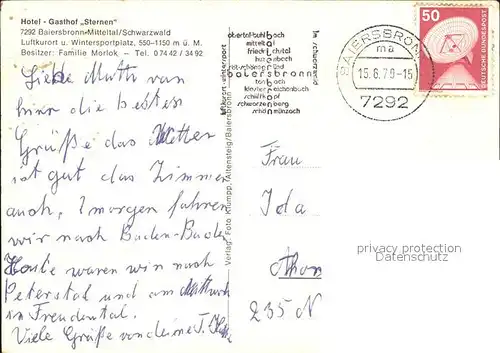 Hotel - Gasthof „Sternen"
7292 Baiersbronn-Mitteltal/Schwarzwald
Luftkurort u. Wintersportplatz, 550—1150 m ü. M.
Besitzer: Familie Morlok — Tel. 0 74 42 / 34 92
Liebe von
hier die besten
Grüße das Wetter
ist gut das Zimmer
auch, morgen fahren
wir nach Baden-Baden
Heute waren wir nach
Peterstal und am Mittwoch
in Freudental.
Viele Grüße von deine T.
Verlag: Foto Klumpp, Altensteig/Baiersbronn
luftkurort wintersport
obertal-buhlbach
mitteltal
friedrichstal
huzenbach
baiersbronn
tonbach
klosterreichenbach
schwarzenberg
schönmünzach
im schwarzwald
BAIERSBRONN
ma
15.6.79-15
7292
50
DEUTSCHE BUNDESPOST
Frau
Ida
235 N
privacy protection
VORMERKER.COM